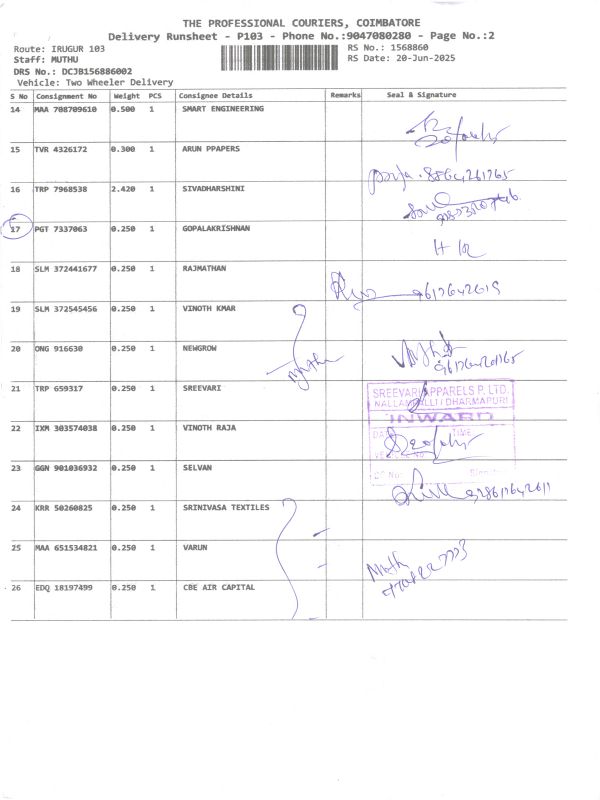 THE PROFESSIONAL COURIERS, COIMBATORE
Delivery Runsheet - P103 - Phone No.:9047080280 - Page No.:2
Route: IRUGUR 103
RS No.: 1568860
Staff: MUTHU
RS Date: 20-Jun-2025
DRS No.: DCJB156886002
Vehicle: Two Wheeler Delivery
S No Consignment No Weight PCS Consignee Details Remarks Seal & Signature
14 MAA 708709610 0.500 1 SMART ENGINEERING
15 TVR 4326172 0.300 1 ARUN PPAPERS
16 TRP 7968538 2.420 1 SIVADHARSHINI
17 PGT 7337063 0.250 1 GOPALAKRISHNAN
18 SLM 372441677 0.250 1 RAJMATHAN
19 SLM 372545456 0.250 1 VINOTH KMAR
20 ONG 916630 0.250 1 NEWGROW
21 TRP 659317 0.250 1 SREEVARI
SREEVARI APPARELS P. LTD.
NALLAMPALLI / DHARMAPURI
INWARD
22 IXM 303574038 0.250 1 VINOTH RAJA
TIME
23 GGN 901036932 0.250 1 SELVAN
24 KRR 50260825 0.250 1 SRINIVASA TEXTILES
25 MAA 651534821 0.250 1 VARUN
26 EDQ 18197499 0.250 1 CBE AIR CAPITAL